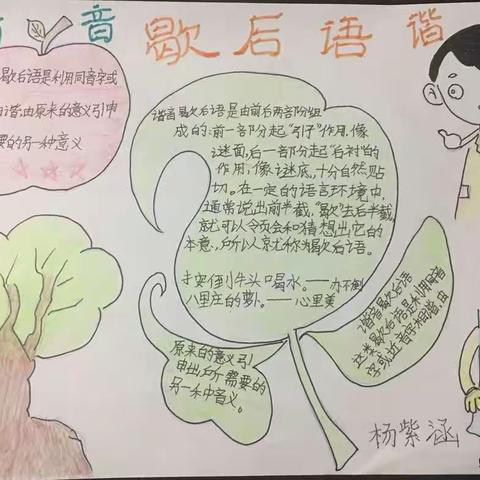 音 歇后语 谐
歇后语是利用同音字或
谐,由原来的意义引申
要的另一种意义
谐音歇后语是由前后两部分组
成的:前一部分起"引子"作用,像
谜面,后一部分起"后衬"的
作用,像谜底,十分自然贴
切。在一定的语言环境中,
通常说出前半截,"歇"去后半截,
就可以令页会和猜想出它的
本意,所以京尤称为歇后语。
按倒牛头口喝水。——办不到
八里庄的萝卜。——心里美
原来的意义引
申出所需要的
另一种意义。
谐音歇后语
这类歇后语是利用同音
字或近音字相谐,由
杨紫涵